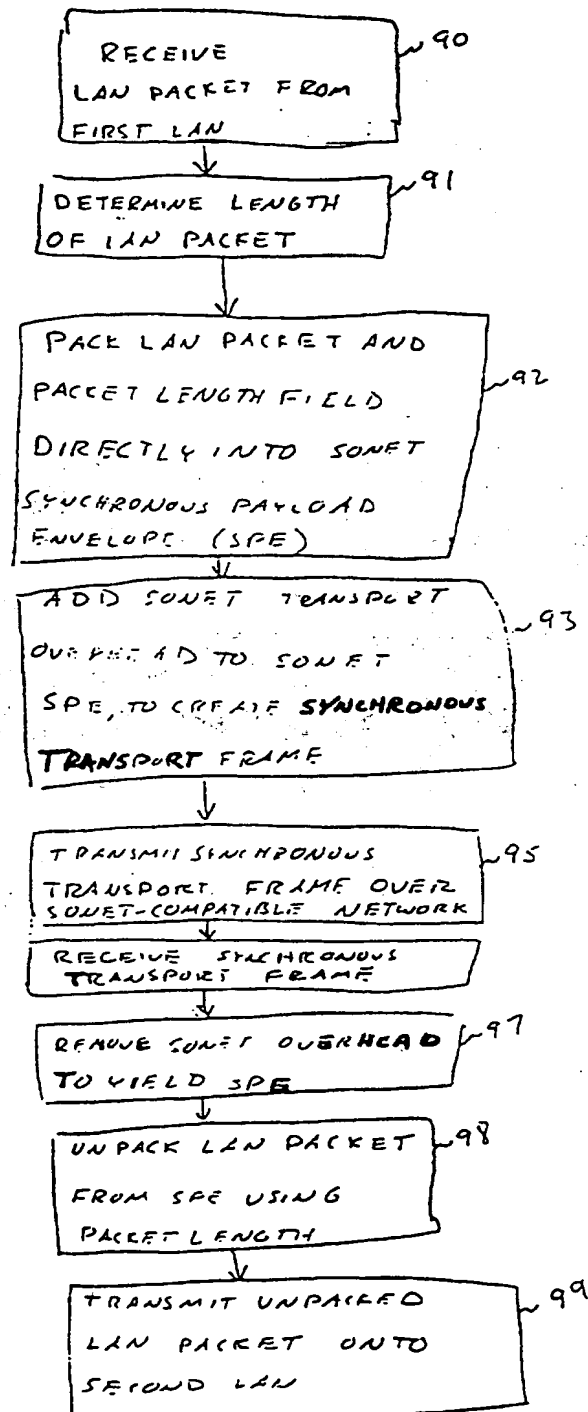 RECEIVE
LAN PACKET FROM
FIRST LAN
90
DETERMINE LENGTH
OF LAN PACKET
91
PACK LAN PACKET AND
PACKET LENGTH FIELD
DIRECTLY INTO SONET
SYNCHRONOUS PAYLOAD
ENVELOPE (SPE)
92
ADD SONET TRANSPORT
OVERHEAD TO SONET
SPE, TO CREATE SYNCHRONOUS
TRANSPORT FRAME
93
TRANSMIT SYNCHRONOUS
TRANSPORT FRAME OVER
SONET-COMPATIBLE NETWORK
95
RECEIVE SYNCHRONOUS
TRANSPORT FRAME
REMOVE SONET OVERHEAD
TO YIELD SPE
97
UNPACK LAN PACKET
FROM SPE USING
PACKET LENGTH
98
TRANSMIT UNPACKED
LAN PACKET ONTO
SECOND LAN
99